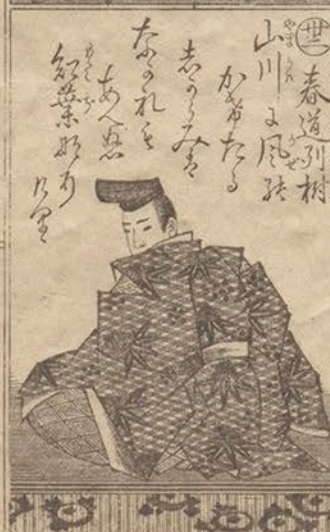 丗二
春道列樹
山川に風の
かけたる
しからみは
なかれも
あへぬ
紅葉なり
けり